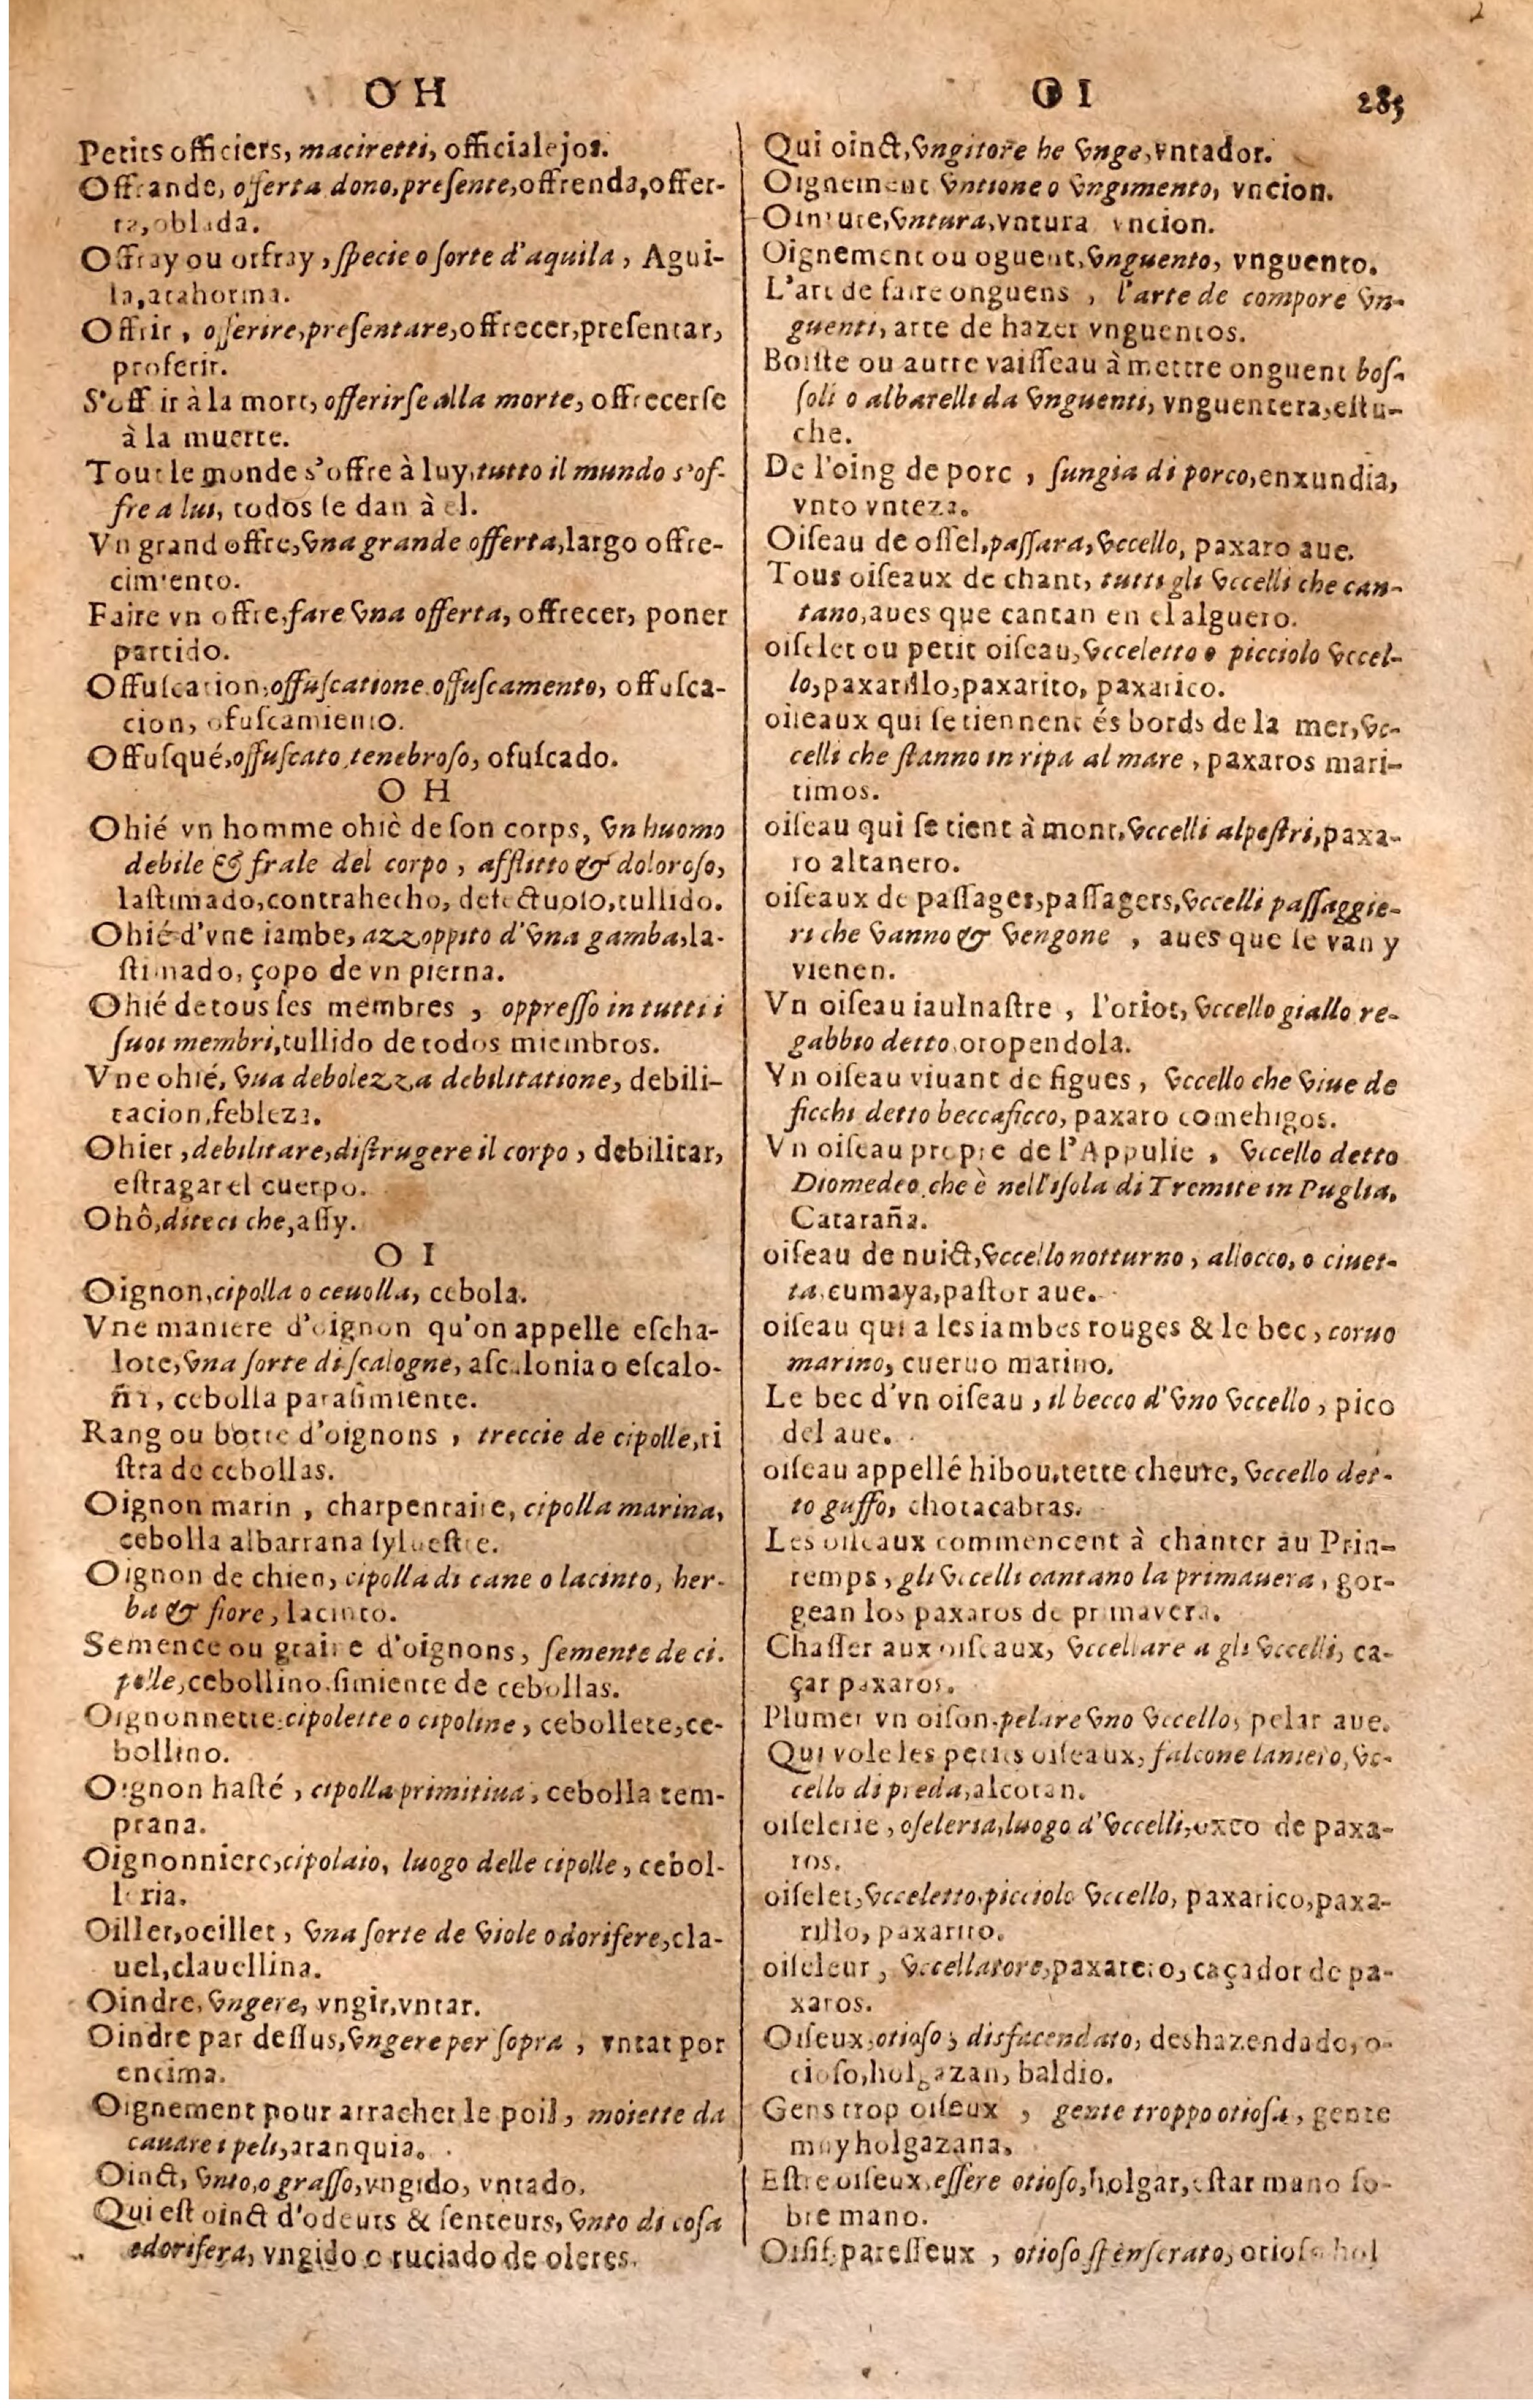 OH
Petits officiers, maciretti, officialejos.
Offrande, offerta dono, presente, offrenda, offer-
ta, oblada.
Offray ou orfray, specie o sorte d'aquila, Agui-
la, atahorma.
Offrir, offerire, presentare, offrecer, presentar,
proferir.
S'offrir à la mort, offerirse alla morte, offrecerse
à la muerte.
Tout le monde s'offre à luy, tutto il mundo s'of-
fre a lui, todos se dan à el.
Vn grand offre, vna grande offerta, largo offre-
cimiento.
Faire vn offre, fare vna offerta, offrecer, poner
partido.
Offuscation, offuscatione offuscamento, offusca-
cion, ofuscamiento.
Offusqué, offuscato, tenebroso, ofuscado.
O H
Ohié vn homme ohiè de son corps, vn huomo
debile & frale del corpo, afflitto & doloroso,
lastimado, contrahecho, defectuoso, tullido.
Ohié d'vne iambe, azzoppito d'vna gamba, la-
stimado, çopo de vn pierna.
Ohié de tous ses membres, oppresso in tutti i
suoi membri, tullido de todos miembros.
Vne ohié, vna debolezza debilitatione, debili-
tacion, febleza.
Ohier, debilitare, distrugere il corpo, debilitar,
estragar el cuerpo.
Ohô, diteci che, assy.
O I
Oignon, cipolla o ceuolla, cebola.
Vne maniere d'oignon qu'on appelle escha-
lote, vna sorte di scalogne, ascalonia o escalo-
ña, cebolla para simiente.
Rang ou botte d'oignons, treccie de cipolle, ri
stra de cebollas.
Oignon marin, charpentaire, cipolla marina,
cebolla albarrana syluestre.
Oignon de chien, cipolla di cane o Iacinto, her-
ba & fiore, Iacinto.
Semence ou graine d'oignons, semente de ci.
polle, cebollino. simiente de cebollas.
Oignonnette, cipolette o cipoline, cebollete, ce-
bollino.
Oignon hasté, cipolla primitiua, cebolla tem-
prana.
Oignonniere, cipolaio, luogo delle cipolle, cebol-
leria.
Oillet, oeillet, vna sorte de viole odorifere, cla-
uel, clauellina.
Oindre, vngere, vngir, vntar.
Oindre par dessus, vngere per sopra, vntat por
encima.
Oignement pour arracher le poil, moiette da
cauare i peli, aranquia.
Oinct, vnto, o grasso, vngido, vntado.
Qui est oinct d'odeurs & senteurs, vnto di cosa
odorifera, vngido o ruciado de oleres.
O I 285
Qui oinct, vngitore he vnge, vntador.
Oignement vntione o vngimento, vncion.
Ointure, vntura, vntura vncion.
Oignement ou oguent, vnguento, vnguento.
L'art de faire onguens, l'arte de compore vn-
guenti, arte de hazer vnguentos.
Boiste ou autre vaisseau à mettre onguent bos-
soli o albarelli da vnguenti, vnguentera, estu-
che.
De l'oing de porc, sungia di porco, enxundia,
vnto vnteza.
Oiseau de ossel, passara, vccello, paxaro aue.
Tous oiseaux de chant, tutti gli vccelli che can-
tano, aues que cantan en el alguero.
oiselet ou petit oiseau, vcceletto o picciolo vccel-
lo, paxarillo, paxarito, paxarico.
oiseaux qui se tiennent és bords de la mer, vc-
celli che stanno in ripa al mare, paxaros mari-
timos.
oiseau qui se tient à mont, vccelli alpestri, paxa-
ro altanero.
oiseaux de passages, passagers, vccelli passaggie-
ri che vanno & vengone, aues que se van y
vienen.
Vn oiseau iaulnastre, l'oriot, vccello giallo re-
gabbio detto, oropendola.
Vn oiseau viuant de figues, vccello che viue de
ficchi detto beccaficco, paxaro comehigos.
Vn oiseau propre de l'Appulie, vccello detto
Diomedeo, che è nell'isola di Tremite in Puglia.
Cataraña.
oiseau de nuict, vccello notturno, allocco, o ciuet-
ta, cumaya, pastor aue.
oiseau qui a les iambes rouges & le bec, coruo
marino, cueruo marino.
Le bec d'vn oiseau, il becco d'vno vccello, pico
del aue.
oiseau appellé hibou, tette cheure, vccello det-
to guffo, chotacabras.
Les oiseaux commencent à chanter au Prin-
temps, gli vccelli cantano la primauera, gor-
gean los paxaros de primavera.
Chasser aux oiseaux, vccellare a gli vccelli, ca-
çar paxaros.
Plumer vn oison, pelare vno vccello, pelar aue.
Qui vole les petits oiseaux, falcone laniero, vc-
cello di preda, alcotan.
oiselerie, oseleria, luogo d'vccelli, oxeo de paxa-
ros.
oiselet, vcceletto, picciolo vccello, paxarico, paxa-
rillo, paxarito.
oiseleur, vccellatore, paxarero, caçador de pa-
xaros.
Oiseux, otioso, disfacendato, deshazendado, o-
cioso, holgazan, baldio.
Gens trop oiseux, gente troppo otiosa, gente
muy holgazana.
Estre oiseux, essere otioso, holgar, estar mano so-
bre mano.
Oisif, paresseux, otioso spenserato, otioso hol